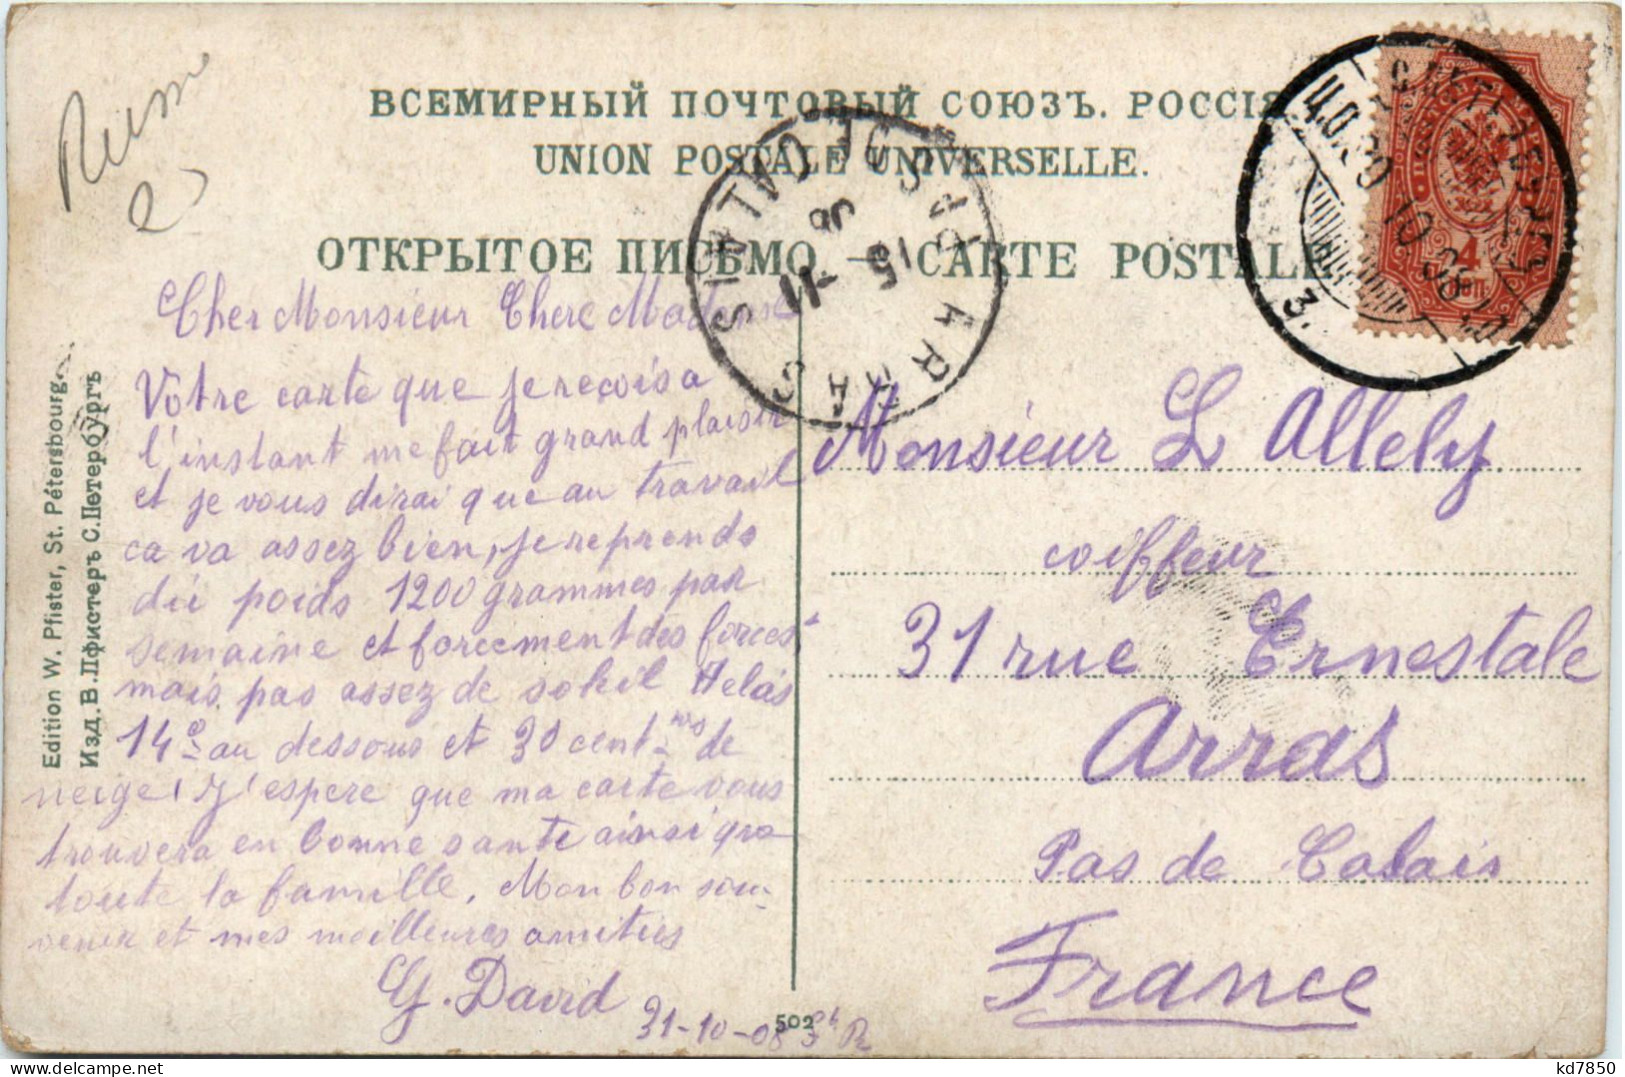 Russie
ВСЕМИРНЫЙ ПОЧТОВЫЙ СОЮЗЪ. РОССІЯ
UNION POSTALE UNIVERSELLE.
ОТКРЫТОЕ ПИСЬМО — CARTE POSTALE
ARRAS PAS DE CALAIS
11
15
08
4
Edition W. Pfister, St. Pétersbourg.
Изд. В. Пфистеръ С. Петербургъ
Cher Monsieur Chere Madame
Votre carte que je reçois a
l'instant me fait grand plaisir
et je vous dirai que au travail
ca va assez bien, je reprends
du poids 1200 grammes par
semaine et forcement des forces
mais pas assez de soleil Helas
14° au dessous et 30 cent-mes de
neige! J'espere que ma carte vous
trouvera en bonne sante ainsi que
toute la famille. Mon bon sou-
venir et mes meilleures amities
G. David
31-10-08
502
Monsieur L Allely
coiffeur
31 rue Ernestale
Arras
Pas de Calais
France
kd7850